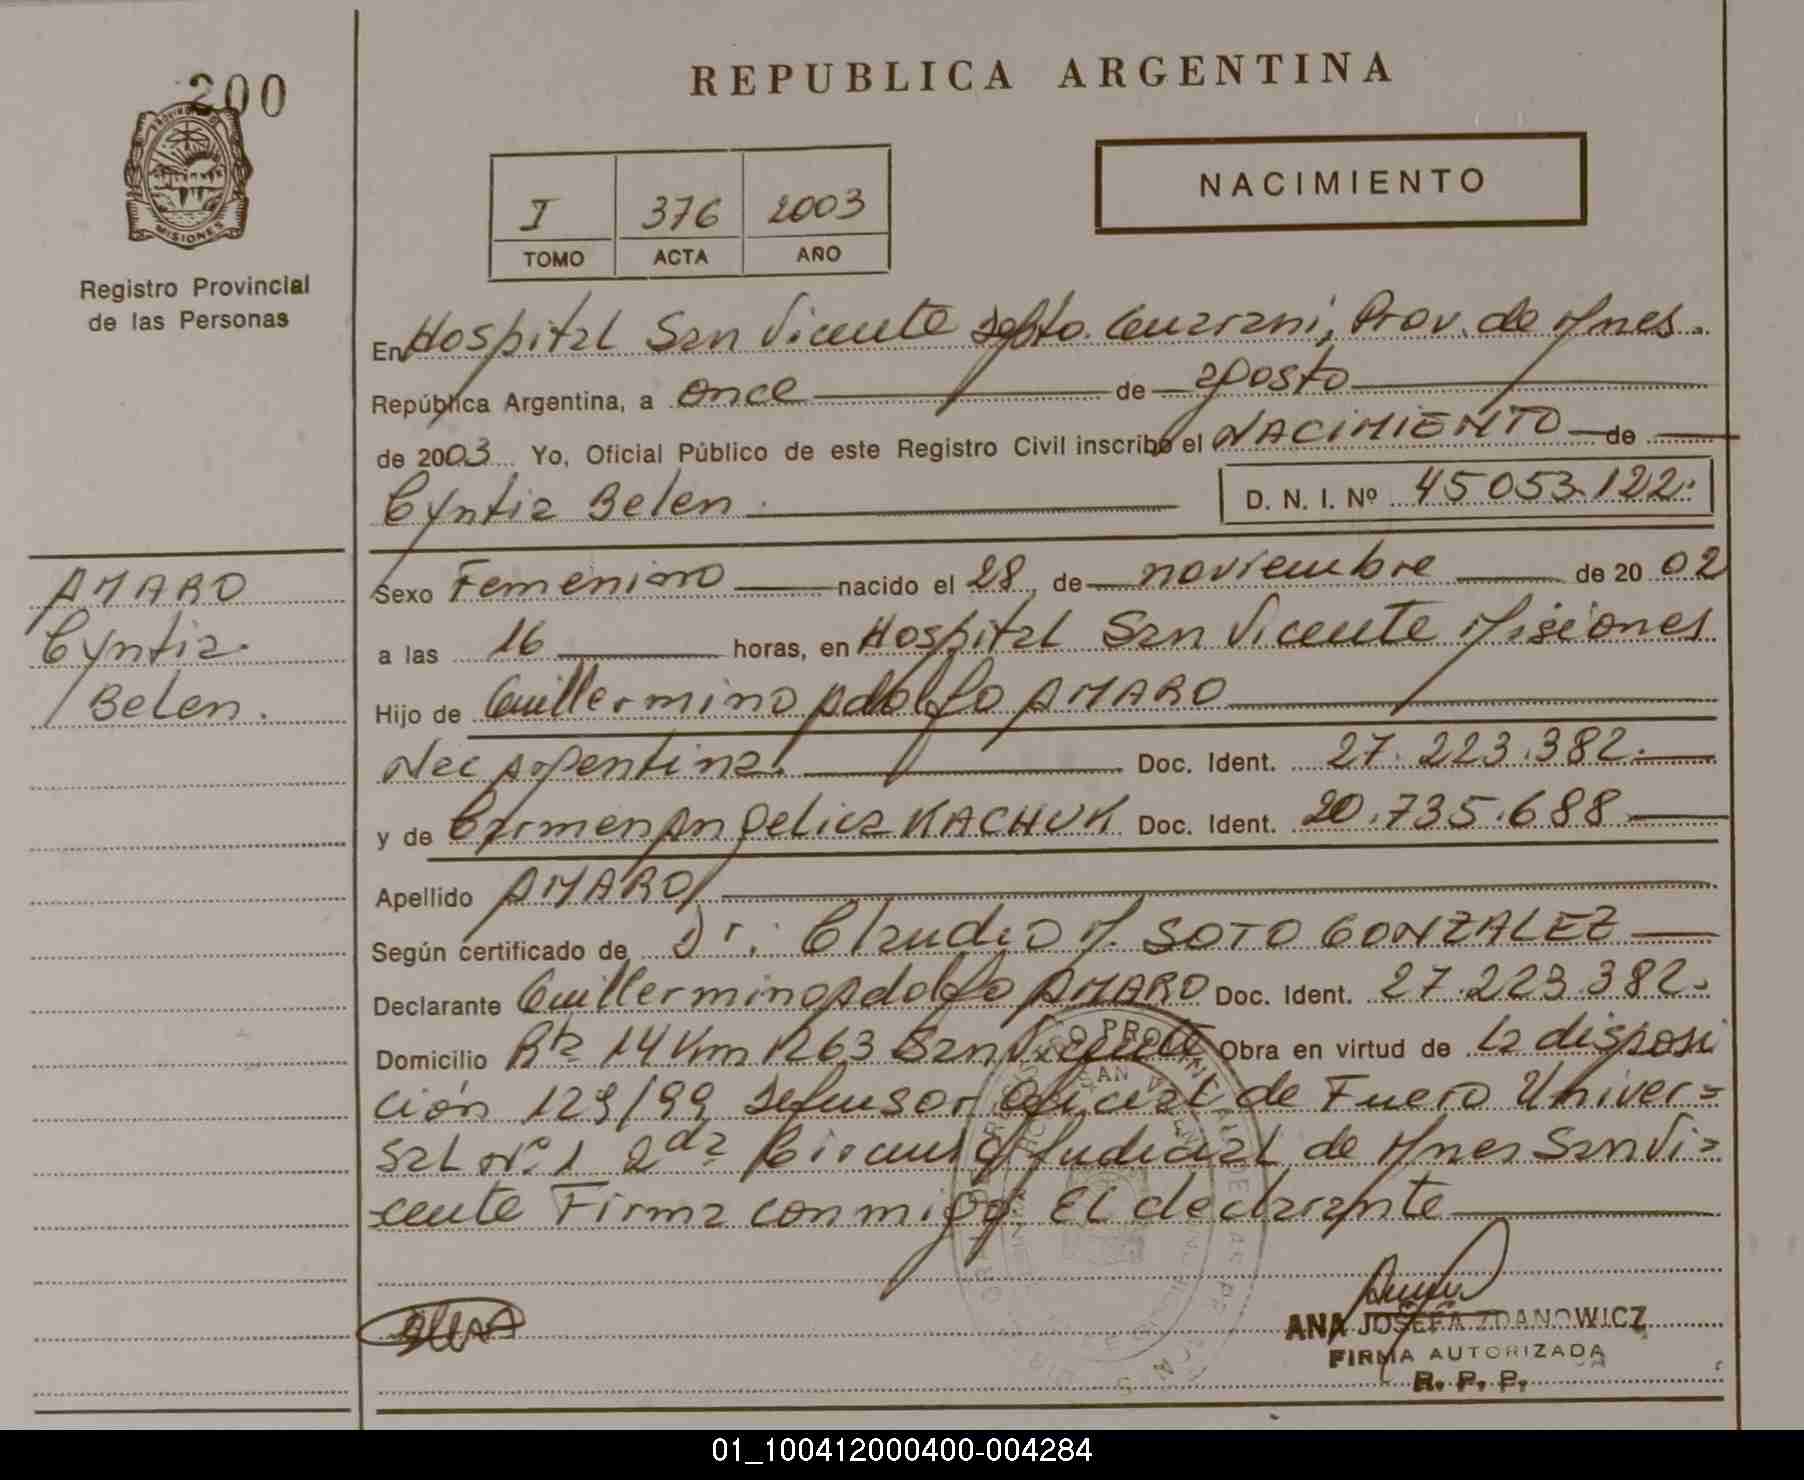 200
PROVINCIA DE
MISIONES
Registro Provincial
de las Personas
REPUBLICA ARGENTINA
NACIMIENTO
I 376 2003
TOMO ACTA AÑO
En Hospital San Vicente Depto. Guarani, Prov. de Mnes.
República Argentina, a once de agosto
de 2003 Yo, Oficial Público de este Registro Civil inscribo el NACIMIENTO de
Cyntia Belen. D. N. I. Nº 45 053.122.
AMARO
Cyntia
Belen.
Sexo Femenino nacido el 28 de noviembre de 20 02
a las 16 horas, en Hospital San Vicente Misiones
Hijo de Guillermino Adolfo AMARO
Nac Argentina. Doc. Ident. 27.223.382.
y de Carmen Angelica KACHUK Doc. Ident. 20.735.688
Apellido AMARO
Según certificado de Dr. Claudio M. SOTO GONZALEZ
Declarante Guillermino Adolfo AMARO Doc. Ident. 27.223.382.
Domicilio Rta 14 Km 1263 San Vicente Obra en virtud de la disposi
ción 129/99 Defensor Oficial de Fuero Univer=
sal Nº 1 2da Circuns Judicial de Mnes San Vi=
cente Firma conmigo El declarante
ANA JOSEFA ZDANOWICZ
FIRMA AUTORIZADA
R. P. P.
01_100412000400-004284